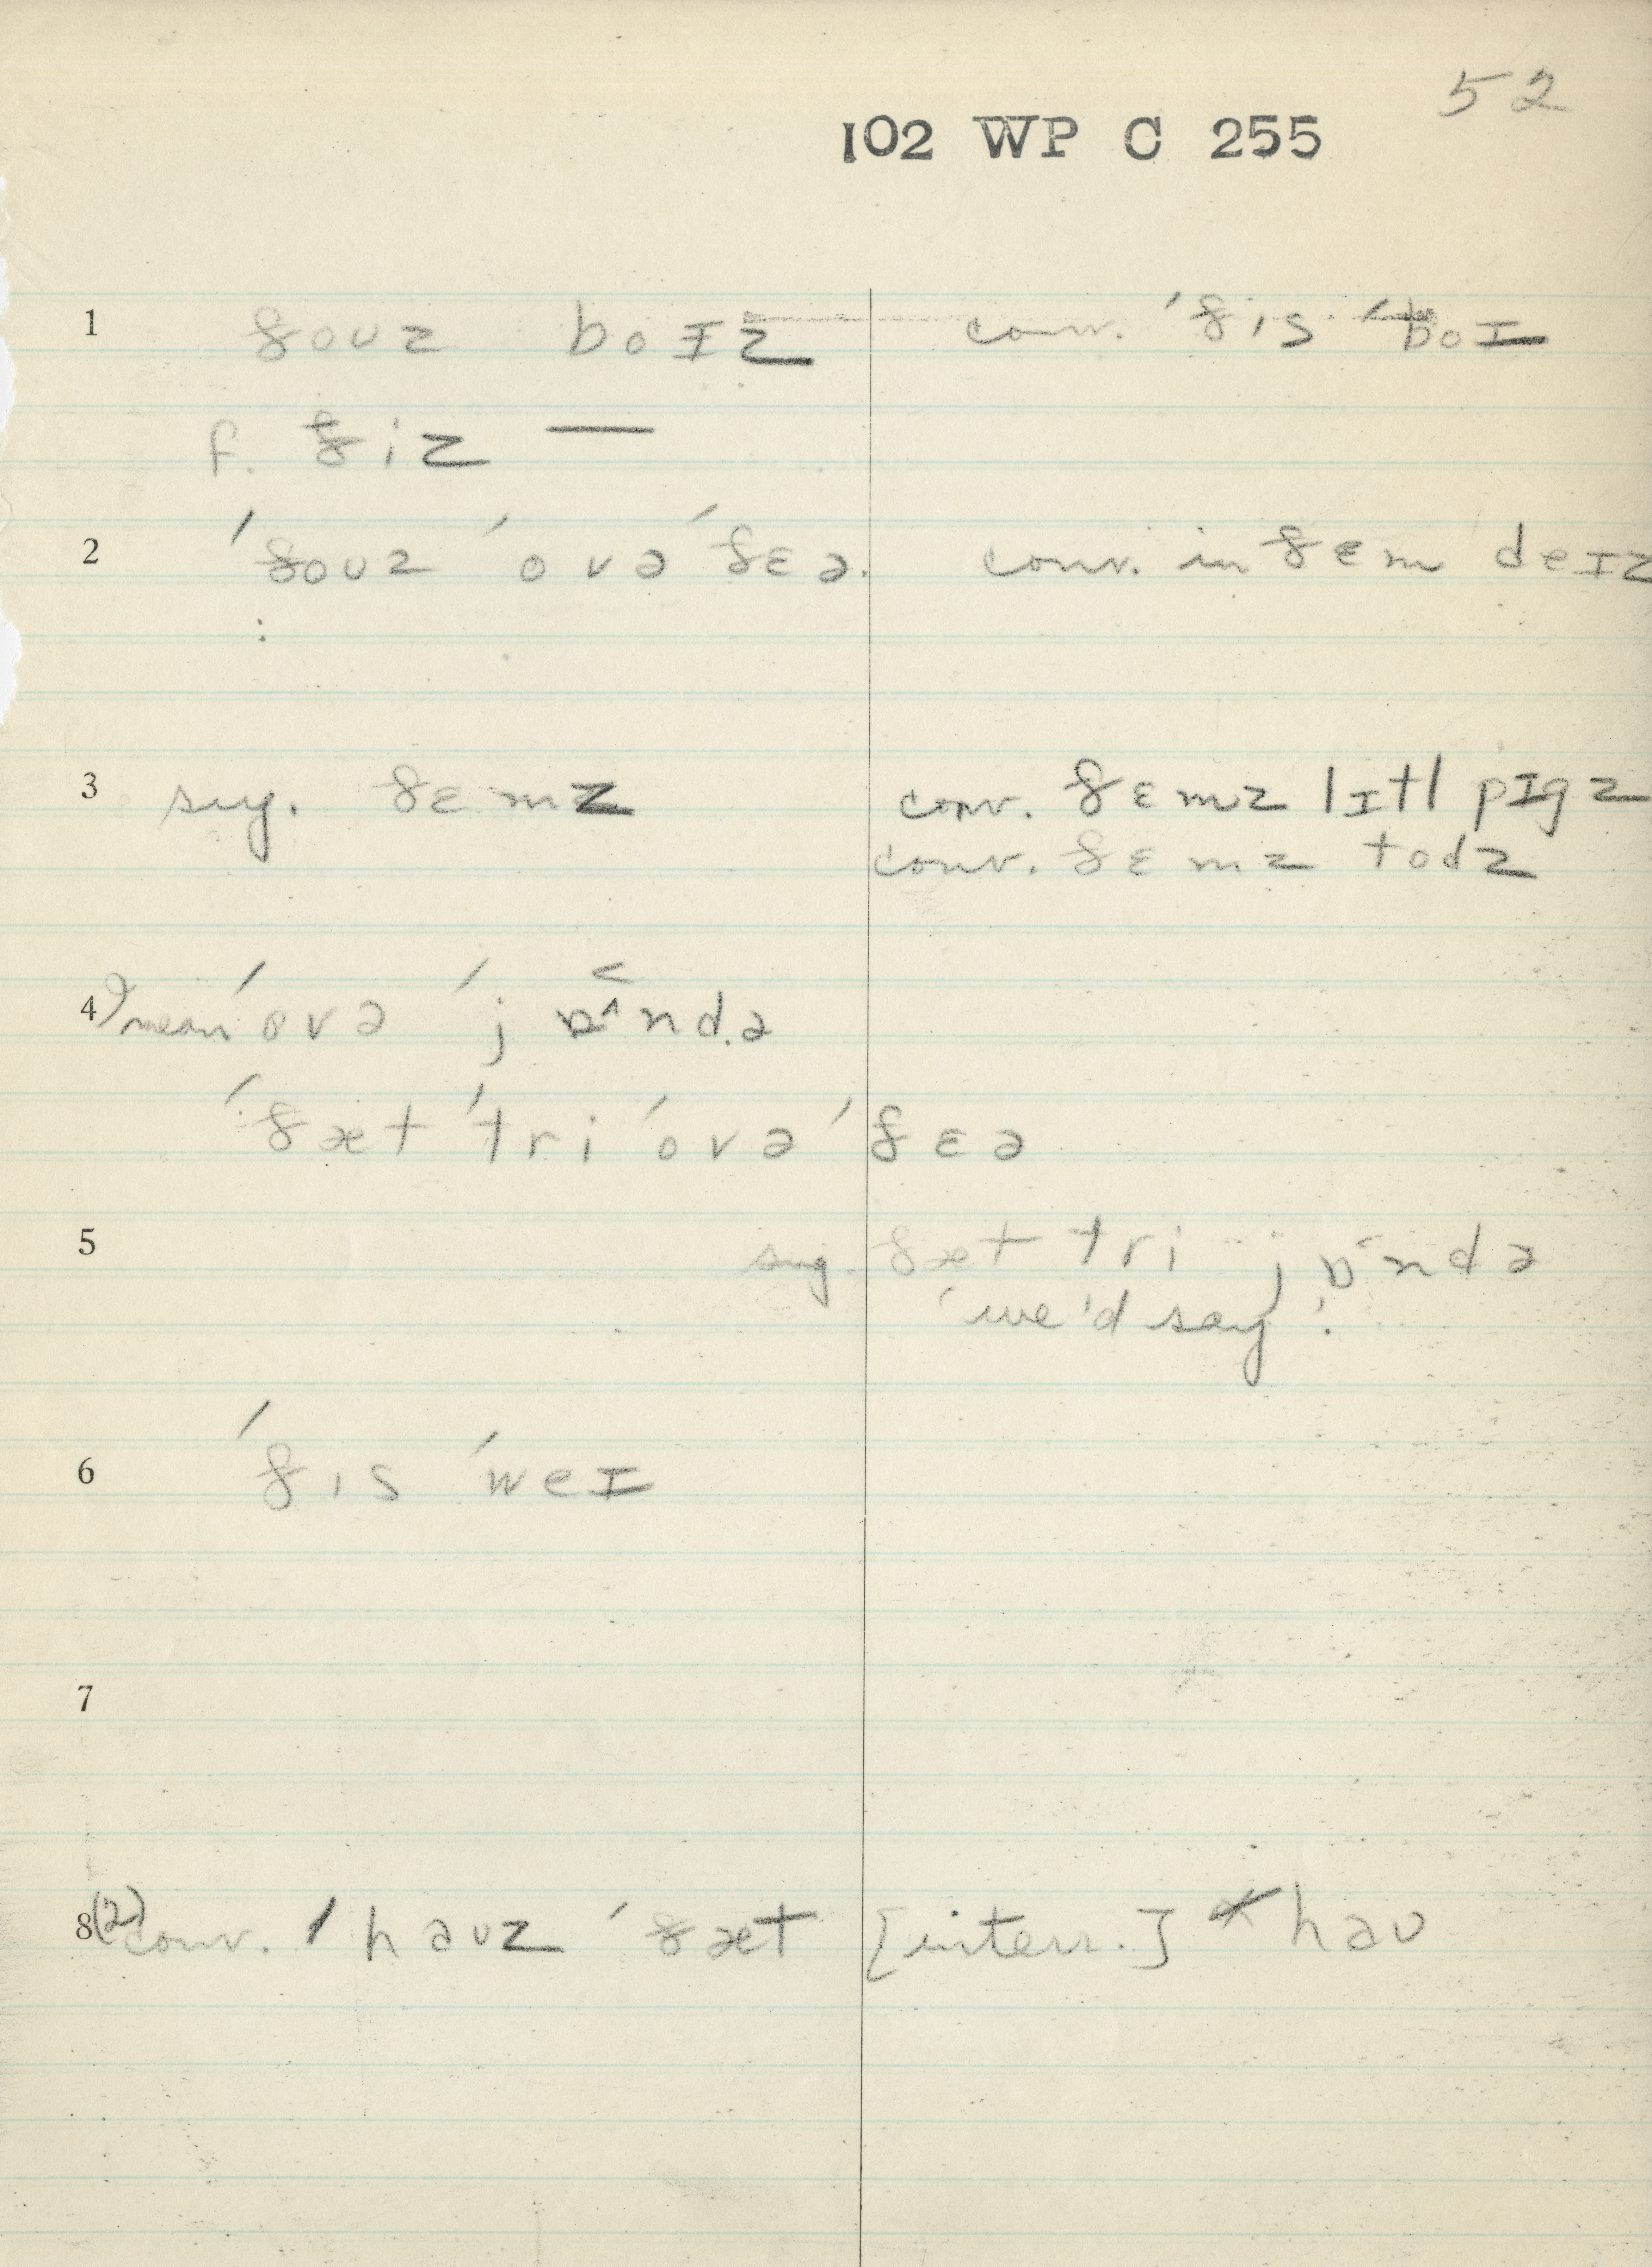 52
102 WP C 255
1 ðouz boɪz conv. ˈðis ˈboɪ
f. ðiz —
2 ˈðouz ˈovəˈðɛə. conv. in ðɛm deɪz
:
3 sug. ðɛmz conv. ðɛmz lɪtl pɪgz
conv. ðɛmz todz
4 I mean ˈovə ˈjɒ^ndə
ˈðæt ˈtri ˈovə ˈðɛə
5 sug. ðæt tri jɒndə
'we'd say'.
6 ˈðis ˈweɪ
7
8 (2) conv. ˈhauz ˈðæt [interr.] * hau